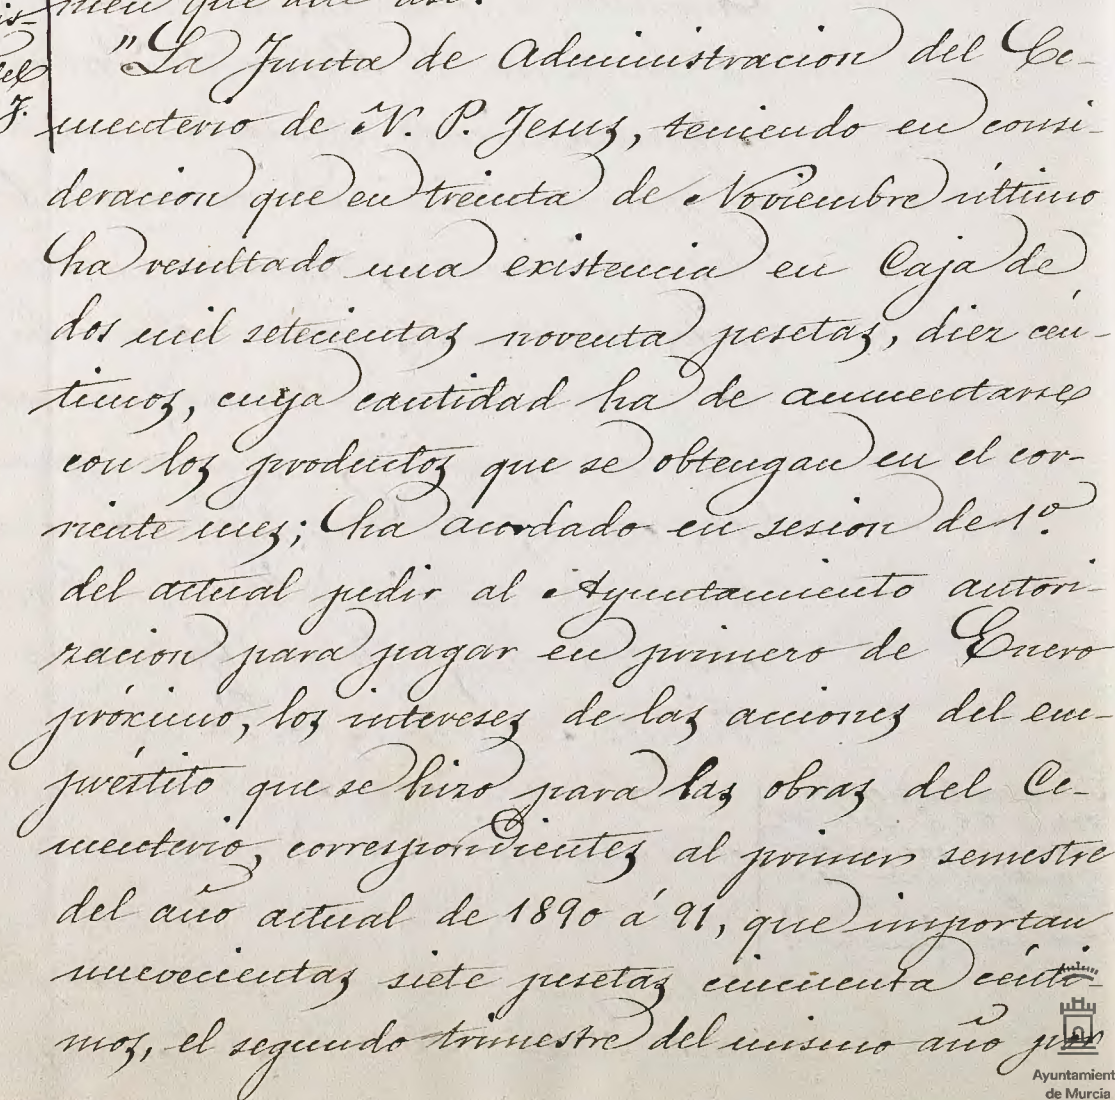 men que dice así:
"La Junta de Administracion del Ce-
menterio de N. P. Jesus, teniendo en consi-
deracion que en treinta de Noviembre último
ha resultado una existencia en Caja de
dos mil setecientas noventa pesetas, diez cén-
timos, cuya cantidad ha de aumentarse
con los productos que se obtengan en el cor-
riente mes; ha acordado en sesion de 1º
del actual pedir al Ayuntamiento autori-
zacion para pagar en primero de Enero
próximo, los intereses de las acciones del em-
préstito que se hizo para las obras del Ce-
menterio, correspondientes al primer semestre
del año actual de 1890 á 91, que importan
nuevecientas siete pesetas cincuenta cénti-
mos, el segundo trimestre del mismo año
Ayuntamient
de Murcia